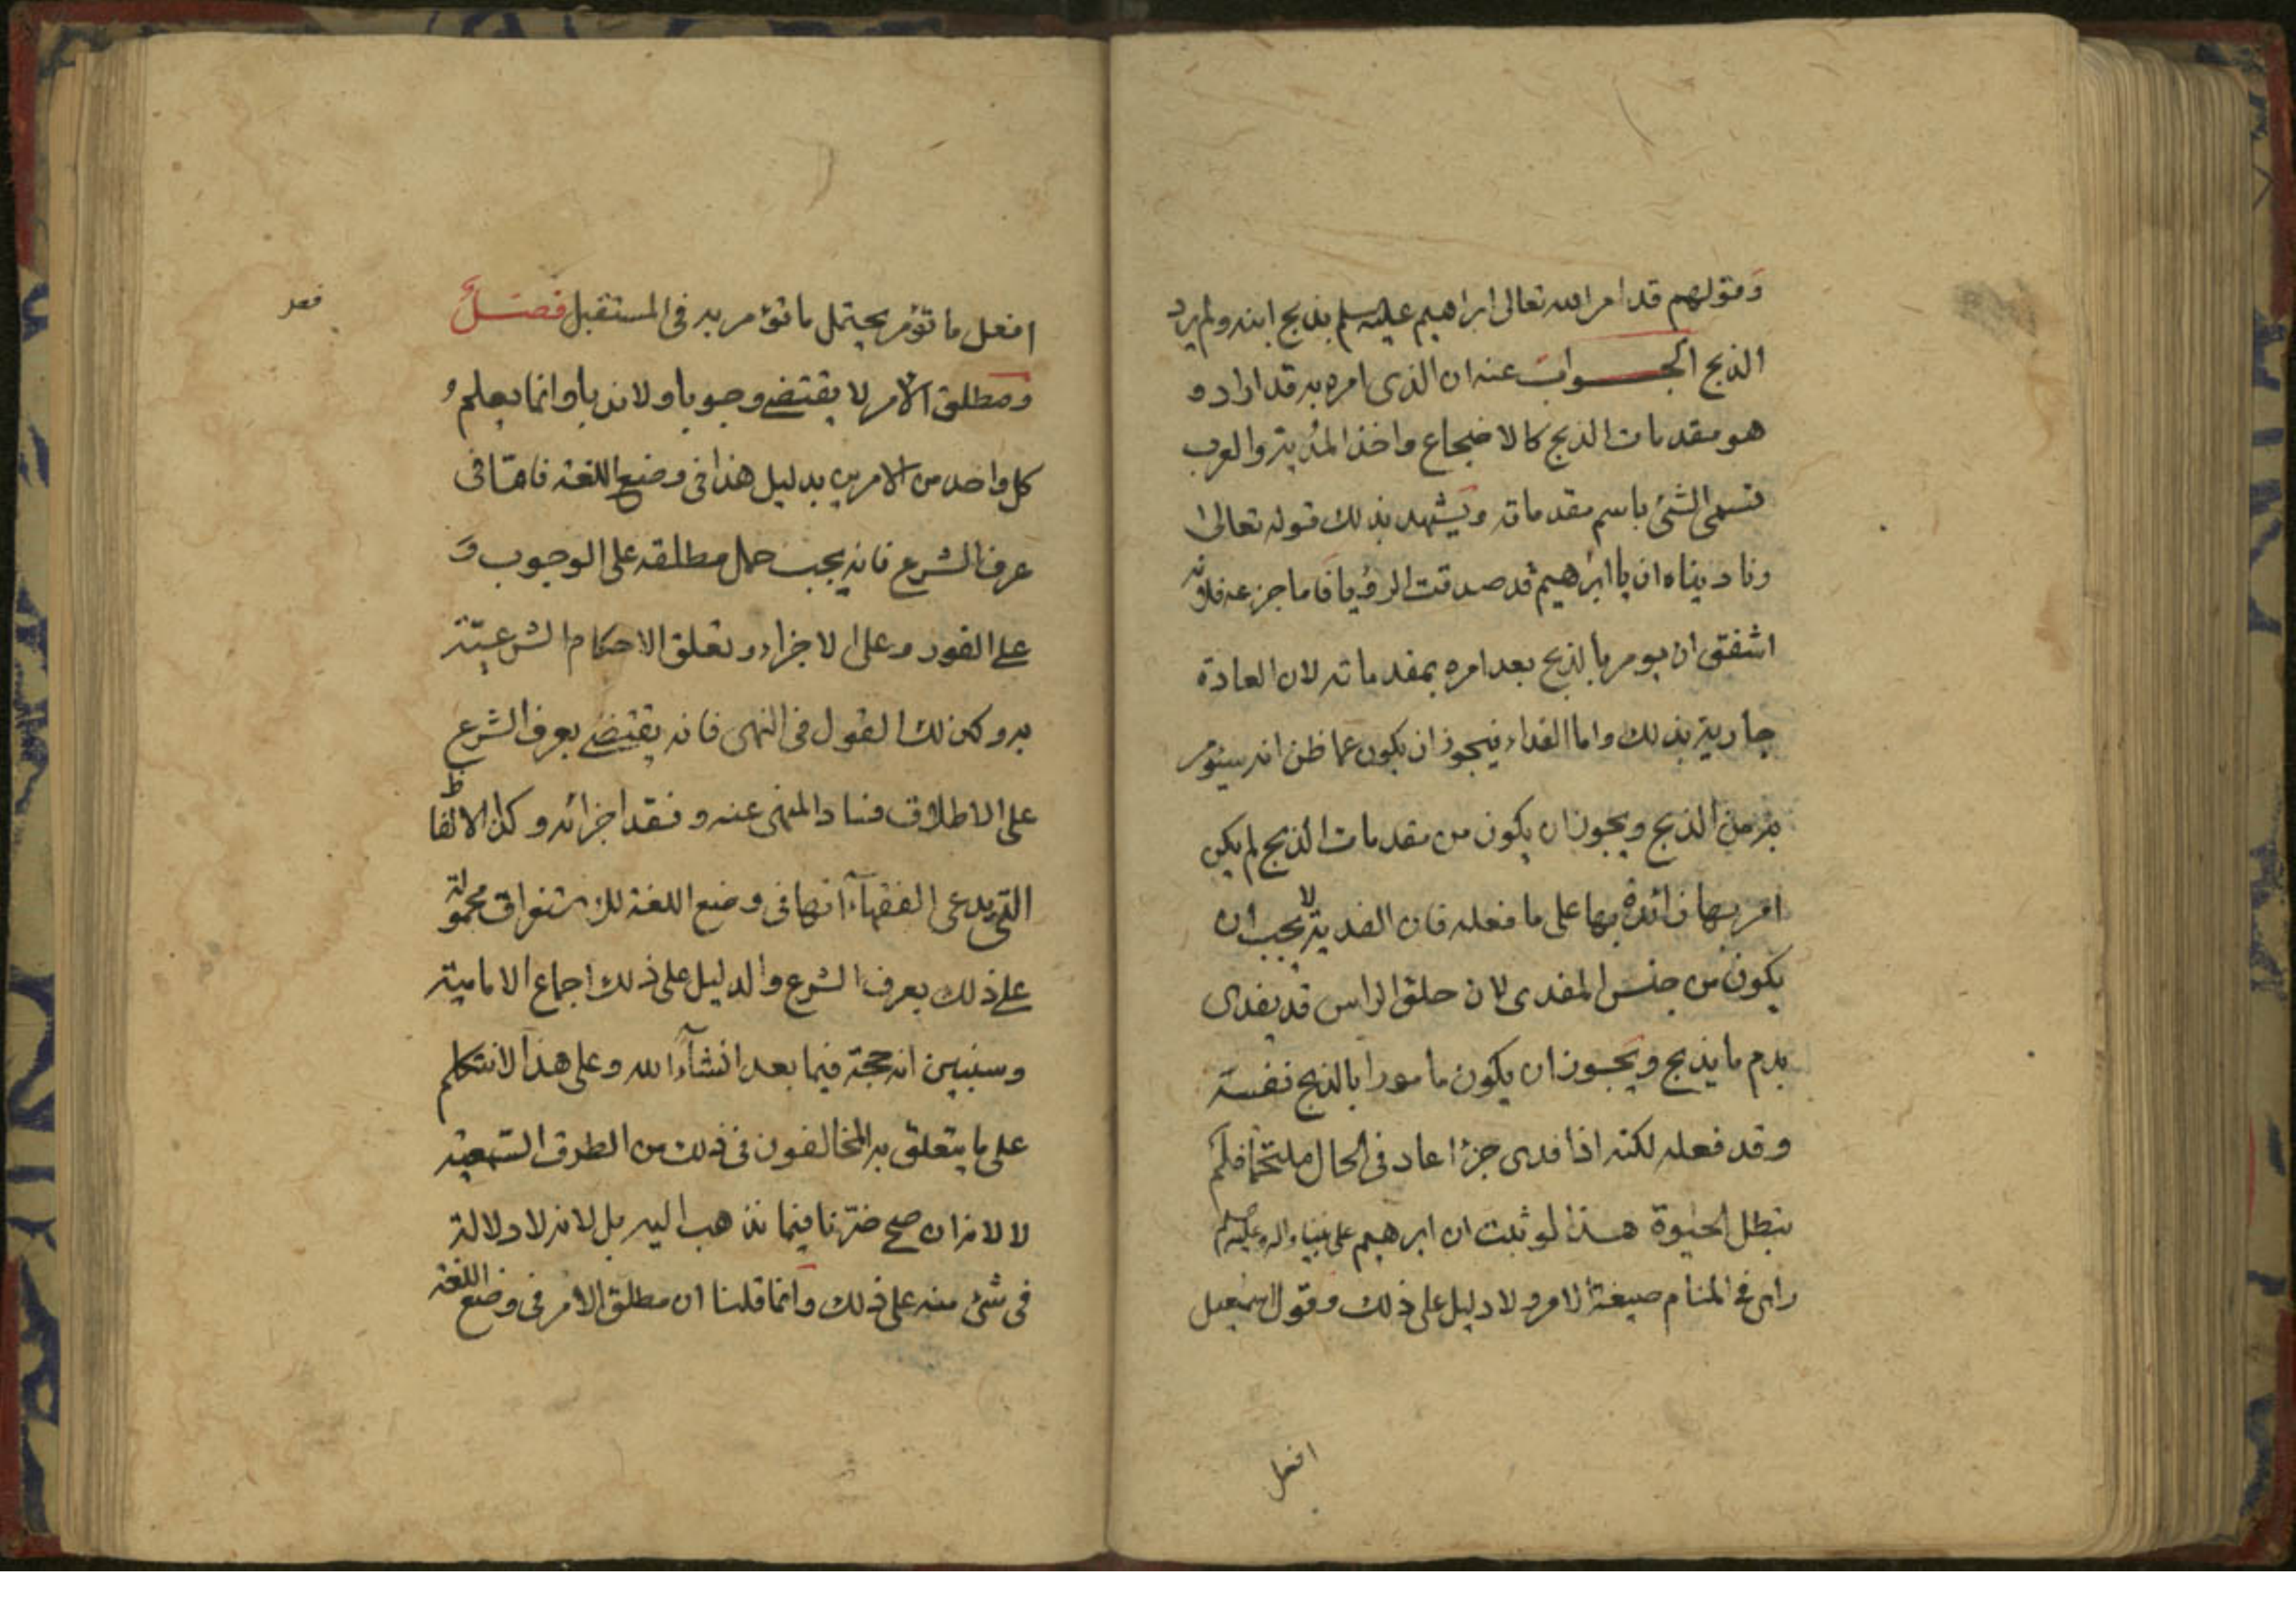 وقولهم قد امر الله تعالى ابراهيم عليه سلم بذبح ابنه ولم يرد
الذبح الجواب عنه ان الذى امره به قد اراده و
هو مقدمات الذبح كالاضجاع واخذ المُدية والعرب
تسمى الشئ باسم مقدماته ويشهد بذلك قوله تعالى
وناديناه ان يا ابرهيم قد صدقت الرؤيا فاما جزعه فلانه
اشفق ان يومر بالذبح بعد امره بمقدماته لان العادة
جارية بذلك واما الفداء فيجوز ان يكون عما ظن انه سيؤمر
به من الذبح ويجوز ان يكون من مقدمات الذبح لم يكن
امر بها زائدة بها على ما فعله فان الفدية لا يجب ان
يكون من جنس المفدى لان حلق الراس قد يفدى
بدم ما يذبح ويجوز ان يكون مامورا بالذبح نفسه
وقد فعله لكنه اذا فرى جزءا عاد فى الحال ملتحما فلم
تبطل الحيوة هذا لو ثبت ان ابرهيم على نبينا واله وعليه
راى فى المنام صيغة الامر ولا دليل على ذلك وقول اسمعيل
افعل
افعل ما تؤمر يحتمل ما تؤمر به فى المستقبل فصل
فصل
ومطلق الامر لا يقتضى وجوبا ولا ندبا وانما يعلم
كل واحد من الامرين بدليل هذا فى وضع اللغة فاما فى
عرف الشرع فانه يجب حمل مطلقه على الوجوب و
على الفور وعلى الاجزاء وتعلق الاحكام الشرعية
به وكذلك القول فى النهى فانه يقتضى بعرف الشرع
على الاطلاق فساد المنهى عنه وفقد اجزائه وكذا الالفاظ
التى يدعى الفقهاء انها فى وضع اللغة للاستغراق محمولة
على ذلك بعرف الشرع والدليل على ذلك اجماع الامامية
وسنبين انه حجة فيما بعد انشاء الله وعلى هذا لا نتكلم
على ما يتعلق به المخالفون فى ذلك من الطرق السمعية
لا لانه ان صح ضرنا فيما نذهب اليه بل لانه لا دلالة
فى شئ منه على ذلك وانما قلنا ان مطلق الامر فى وضع اللغة